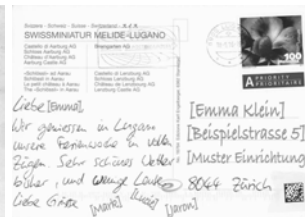 Svizzera - Schweiz - Suisse - Switzerland
SWISSMINIATUR MELIDE-LUGANO
Castello di Aarburg AG
Schloss Aarburg AG
Château d'Aarburg AG
Aarburg Castle AG
Bremgarten AG
«Schlössli» in Aarau
Schlössli in Aarau
Le petit château à Aarau
The «Schlössli» in Aarau
Castello di Lenzburg AG
Schloss Lenzburg AG
Château de Lenzbourg AG
Lenzburg Castle AG
Liebe [Emma],
Wir geniessen in Lugano
unsere Ferienwoche in vollen
Zügen. Sehr schönes Wetter
bisher, und wenige Leute
Liebe Grüsse
[Marie] [Jaron]
100
A PRIORITY
PRIORITAIRE
[Emma Klein]
[Beispielstrasse 5]
[Muster Einrichtung]
8044 Zürich